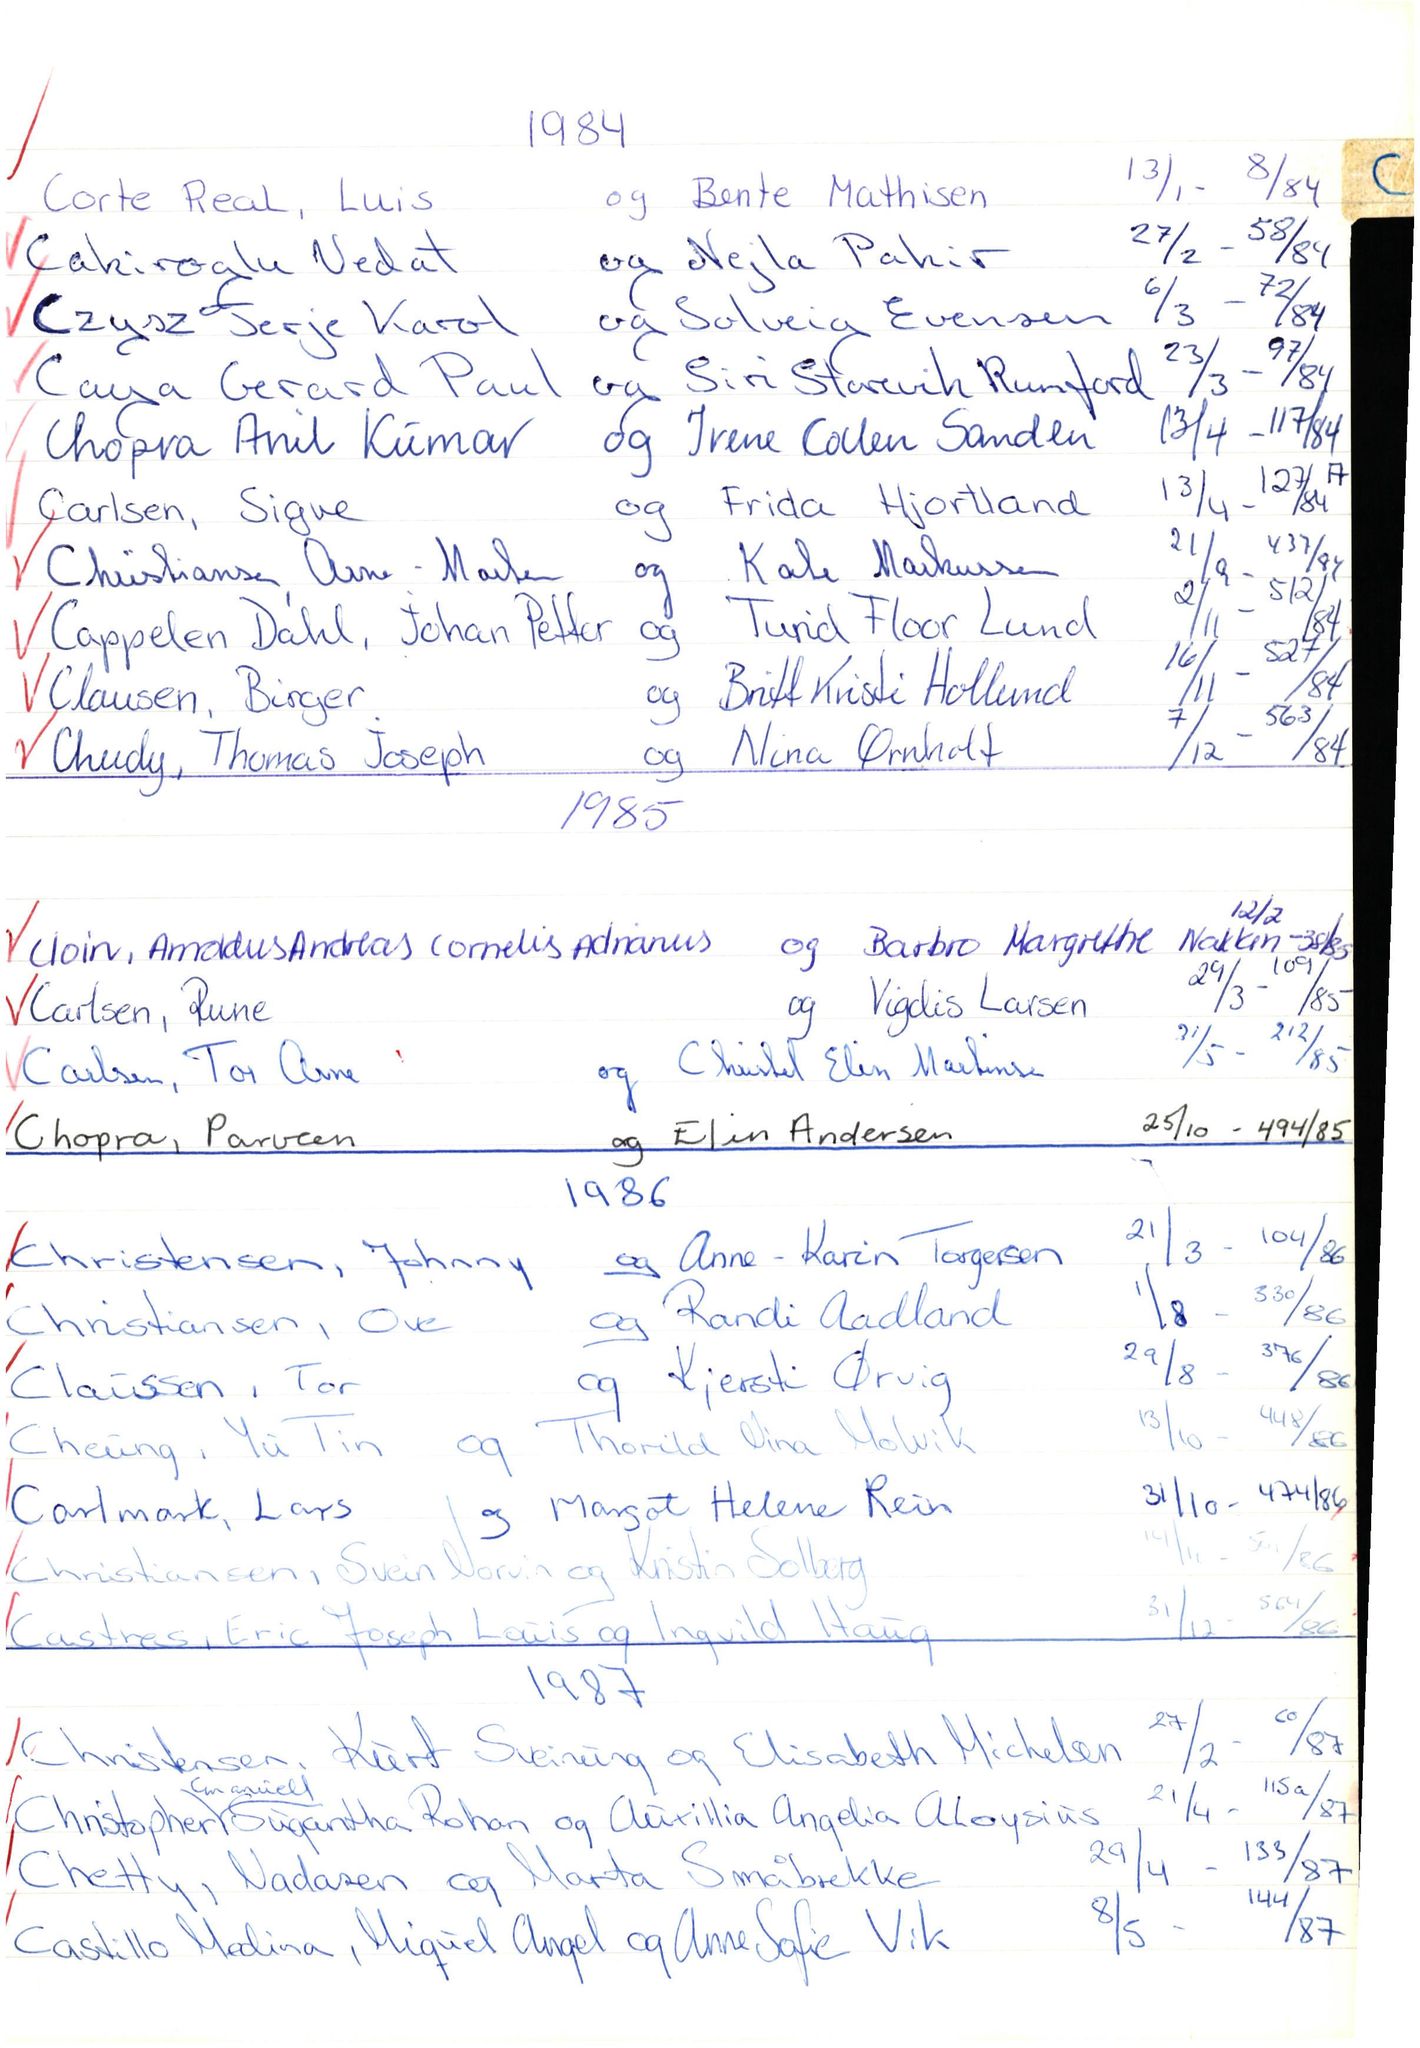 1984
C
Corte Real, Luis og Bente Mathisen 13/1 - 8/84
Cakiroglu Vedat og Nejla Pakir 27/2 - 58/84
Czysz Terje Karol og Solveig Evensen 6/3 - 72/84
Caya Gerard Paul og Siri Storevik Rumford 23/3 - 97/84
Chopra Anil Kumar og Irene Collen Sanden 13/4 - 117/84
Carlsen, Sigve og Frida Hjortland 13/4 - 127/84 A
Christiansen, Arne - Morten og Kate Markussen 21/9 - 437/84
Cappelen Dahl, Johan Petter og Turid Floor Lund 2/11 - 512/84
Clausen, Birger og Britt Kristi Hollund 16/11 - 527/84
Chudy, Thomas Joseph og Nina Ørnholt 7/12 - 563/84
1985
Cloin, Arnoldus Andreas Cornelis Adrianus og Barbro Margrethe Nakken 12/2 - 35/85
Carlsen, Rune og Vigdis Larsen 29/3 - 109/85
Carlsen, Tor Arne og Christel Elin Martinsen 31/5 - 212/85
Chopra, Parveen og Elin Andersen 25/10 - 494/85
1986
Christensen, Johnny og Anne - Karin Torgersen 21/3 - 104/86
Christiansen, Ove og Randi Aadland 1/8 - 330/86
Claussen, Tor og Kjersti Ørvig 29/8 - 376/86
Cheung, Yu Tin og Thorild Nina Molvik 13/10 - 448/86
Carlmark, Lars og Margot Helene Rein 31/10 - 474/86
Christiansen, Svein Norvin og Kristin Solberg 14/11 - /86
Castres, Eric Joseph Louis og Ingvild Haug 31/12 - 564/86
1987
Christensen, Kurt Sveinung og Elisabeth Michelsen 27/2 - 60/87
Emanuell
Christopher Sugantha Rohan og Auxillia Angelia Aloysius 21/4 - 115a/87
Chetty, Nadasen og Marta Småbrekke 29/4 - 133/87
Castillo Medina, Miguel Angel og Anne Sofie Vik 8/5 - 144/87